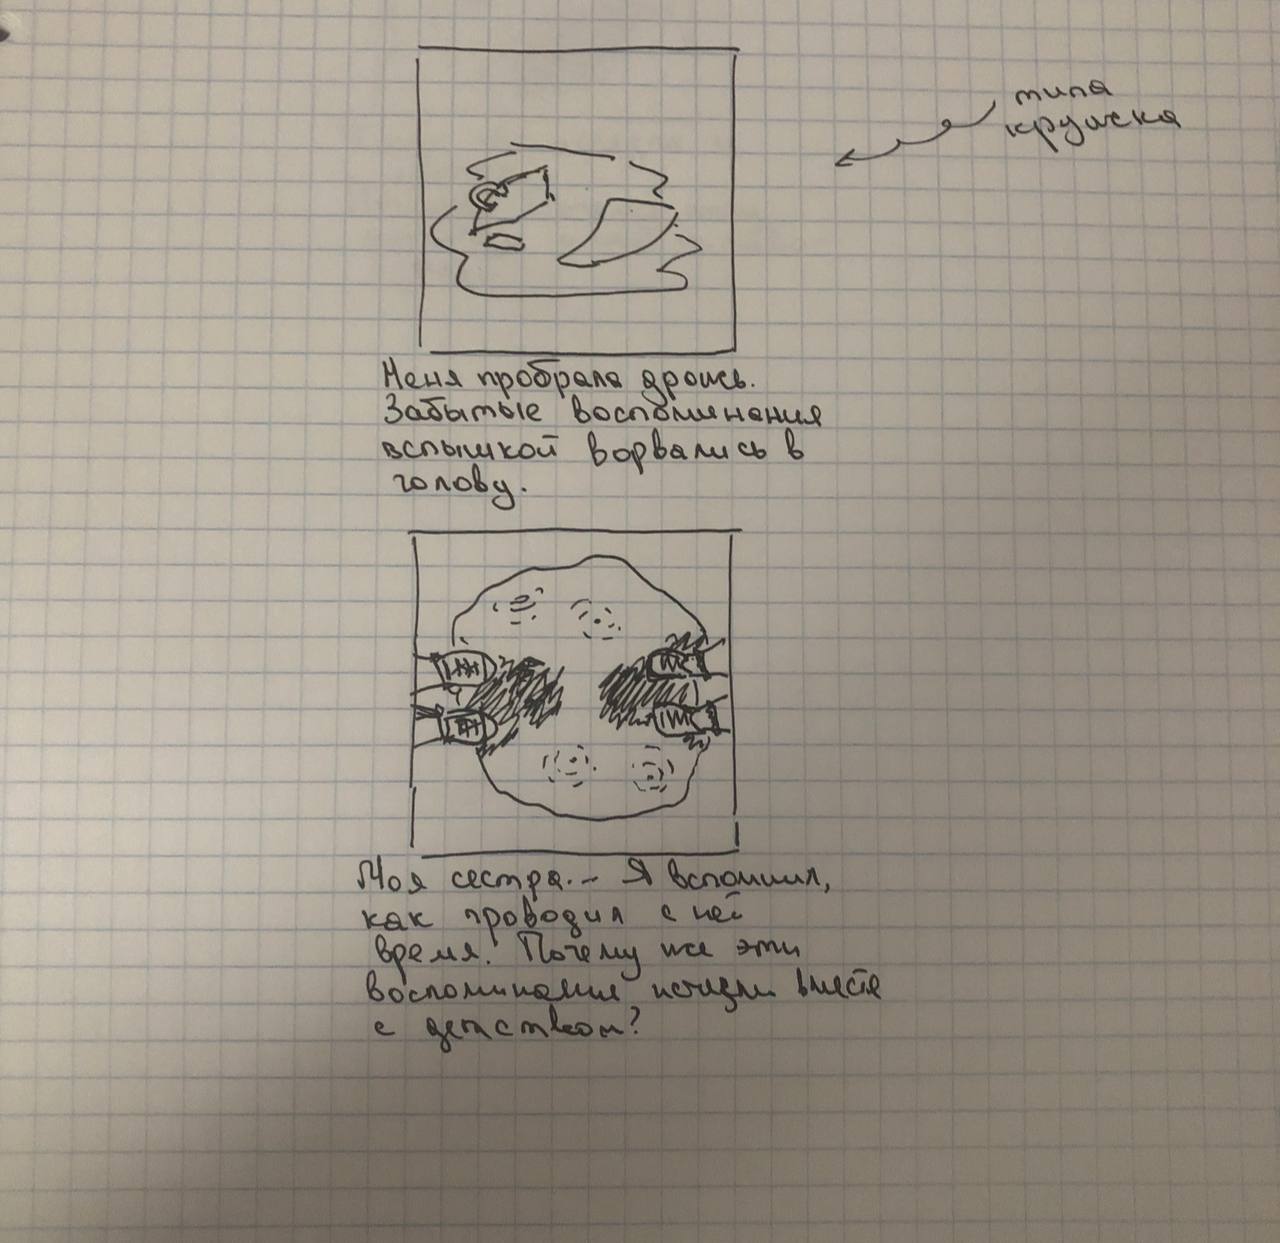 типа
кружка
Меня пробрала дрожь.
Забытые воспоминания
вспышкой ворвались в
голову.
Моя сестра... Я вспомнил,
как проводил с ней
время. Почему же эти
воспоминания исчезли вместе
с детством?